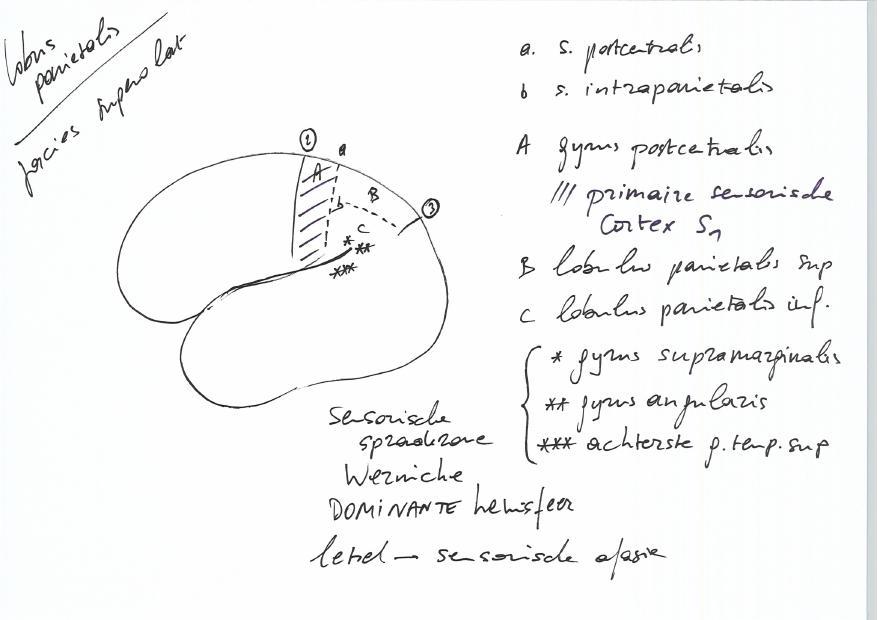 lobus
parietalis
facies superolat
a. S. postcentralis
b s. intraparietalis
A gyrus postcentralis
/// primaire sensorische
Cortex S1
B lobulus parietalis sup
C lobulus parietalis inf.
* gyrus supramarginalis
** gyrus angularis
*** achterste g. temp. sup
2
a
A
B
b
3
C
*
**
***
sensorische
spraakzone
Wernicke
DOMINANTE hemisfeer
letsel — sensorische afasie